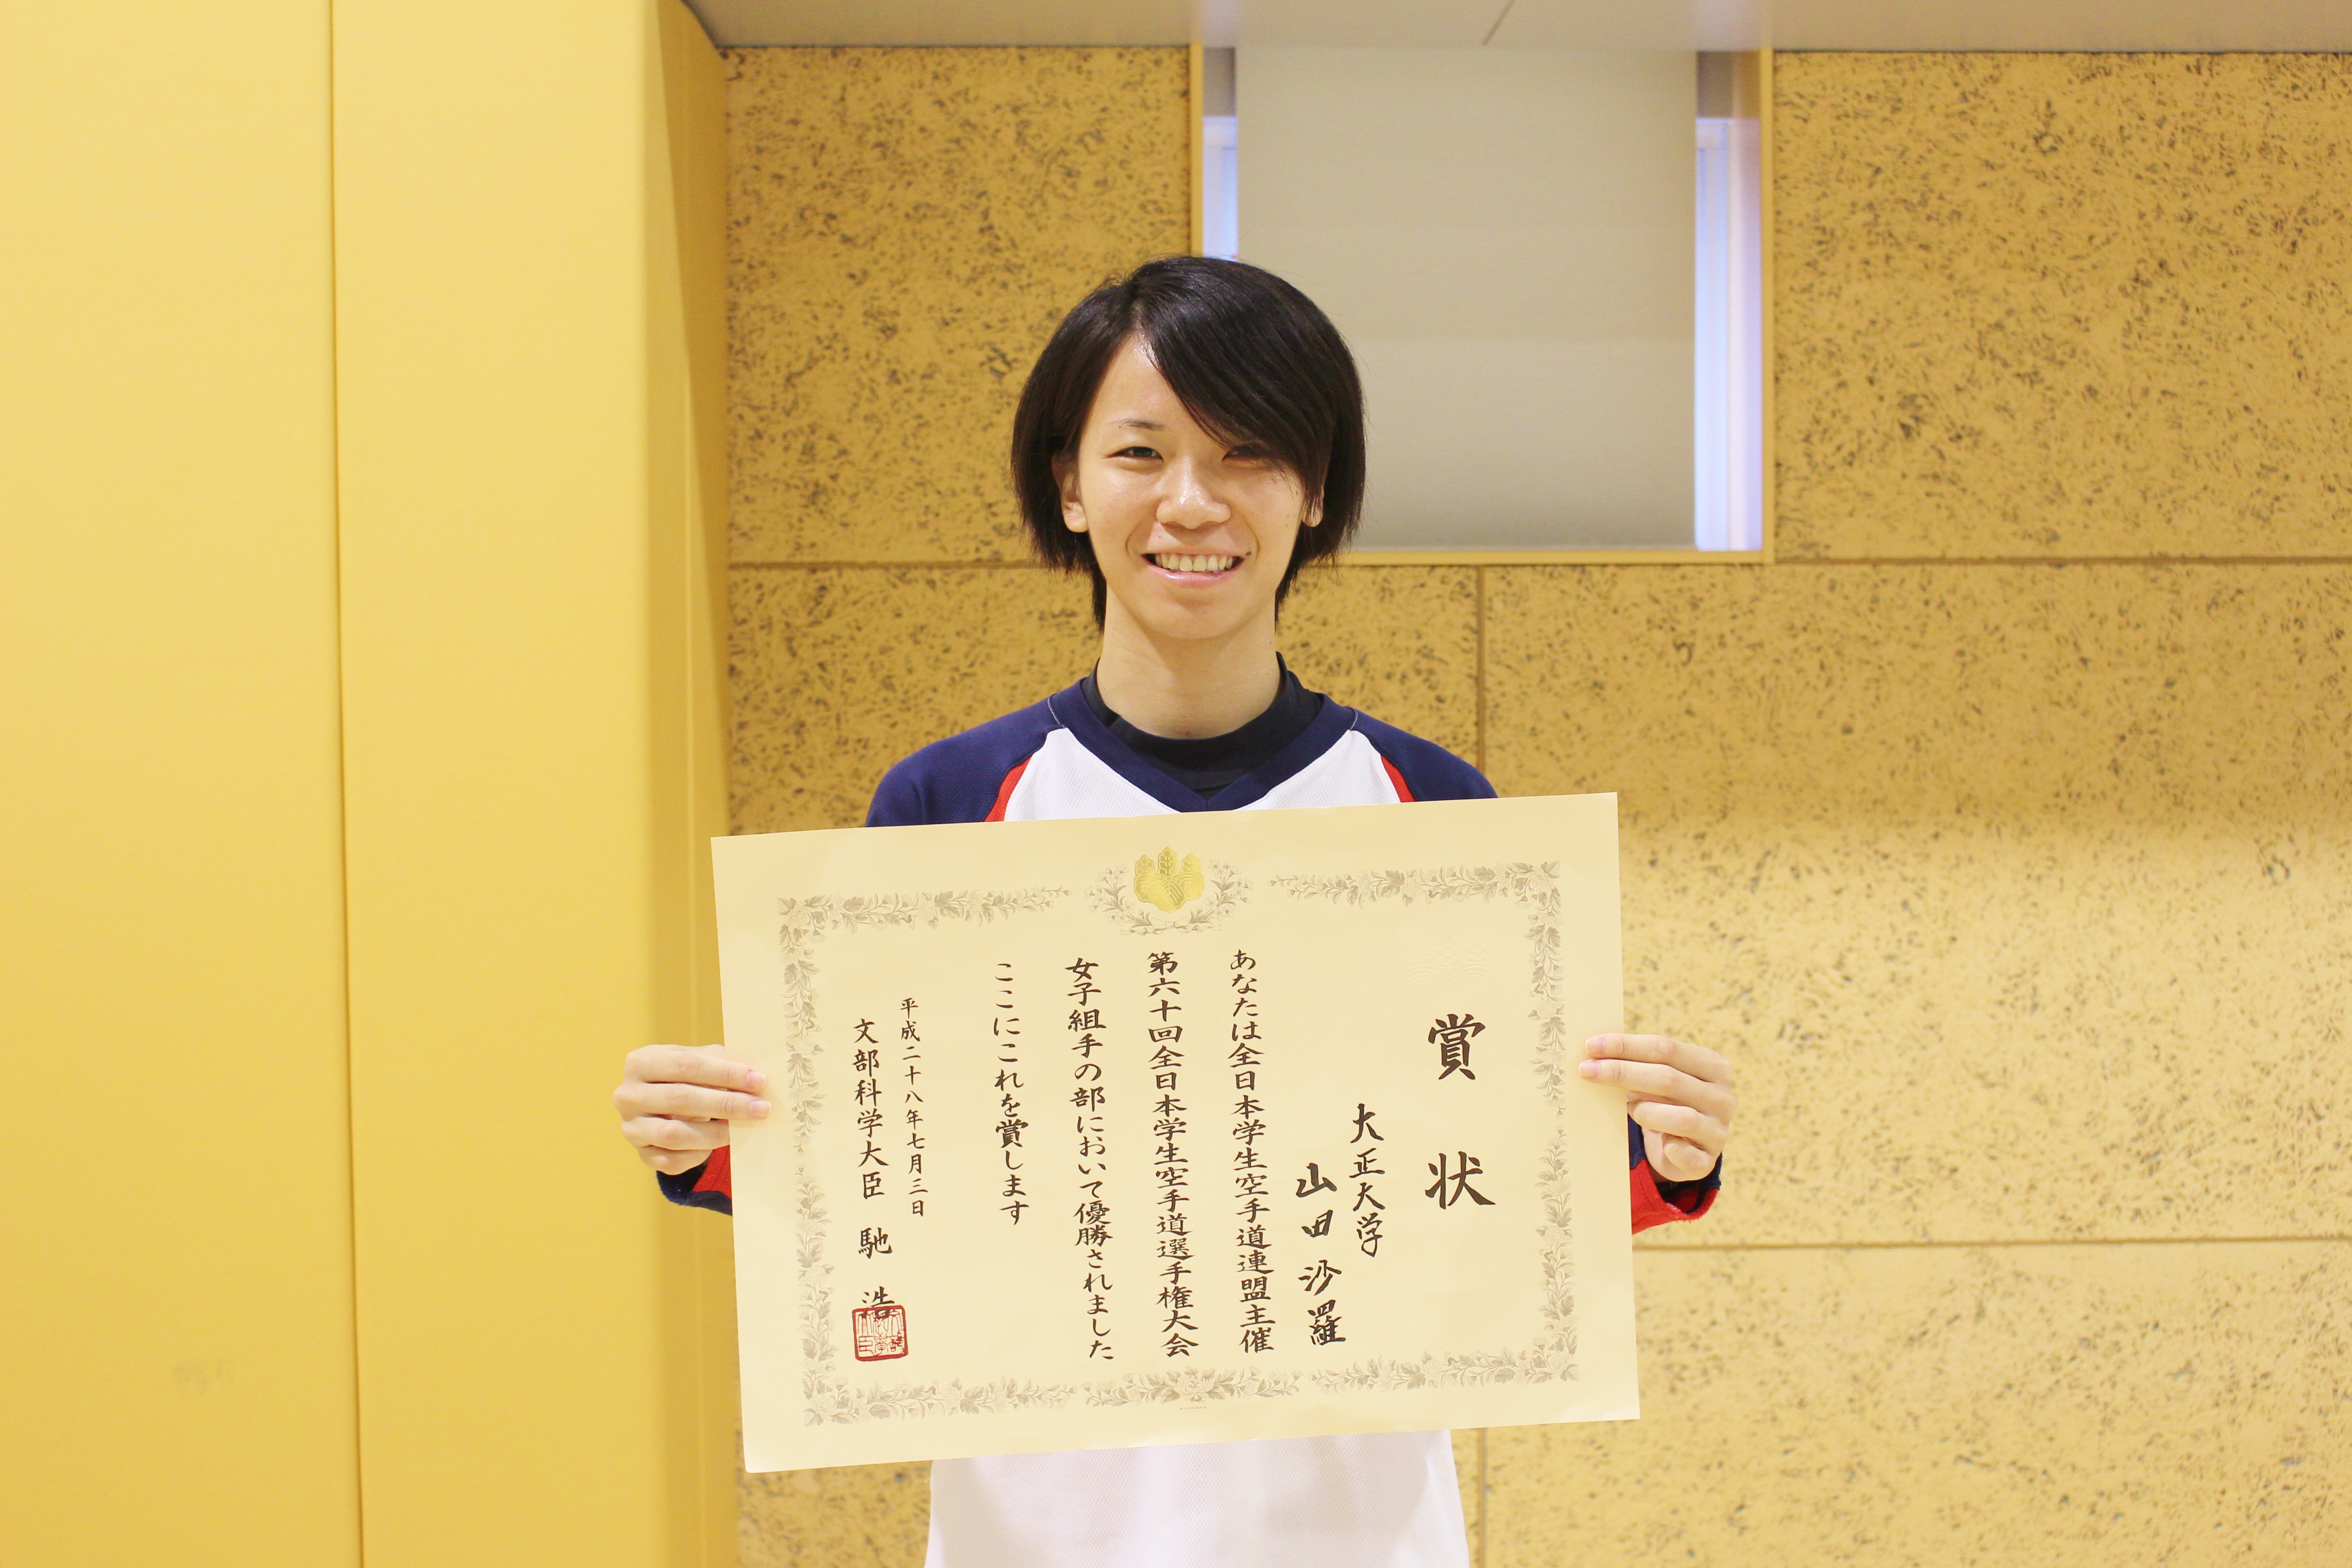 賞状
大正大学
山田沙羅
あなたは全日本学生空手道連盟主催
第六十回全日本学生空手道選手権大会
女子組手の部において優勝されました
ここにこれを賞します
平成二十八年七月三日
文部科学大臣 馳 浩